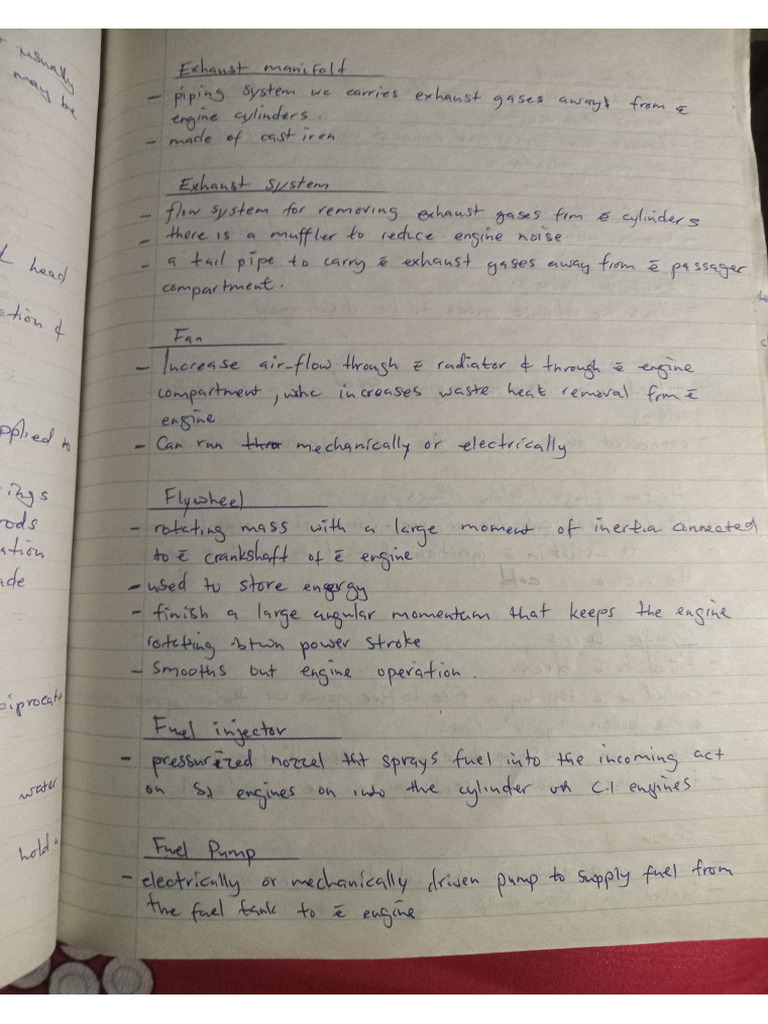 usually
may be
head
ation &
applied to
ings
rods
ation
ade
ciprocate
water
hold
Exhaust manifold
- piping system wc carries exhaust gases away from ē
engine cylinders.
- made of cast iron
Exhaust system
- flow system for removing exhaust gases frm ē cylinders
- there is a muffler to reduce engine noise
- a tail pipe to carry ē exhaust gases away from ē passager
compartment.
Fan
- Increase air-flow through ē radiator & through ē engine
compartment, whc increases waste heat removal frm ē
engine
- Can run mechanically or electrically
Flywheel
- rotating mass with a large moment of inertia connected
to ē crankshaft of ē engine
- used to store energy
- finish a large angular momentum that keeps the engine
rotating btwn power stroke
- smooths out engine operation.
Fuel injector
- pressurized nozzel tht sprays fuel into the incoming act
on S.I engines on into the cylinder on C.I engines
Fuel Pump
- electrically or mechanically driven pump to supply fuel from
the fuel tank to ē engine